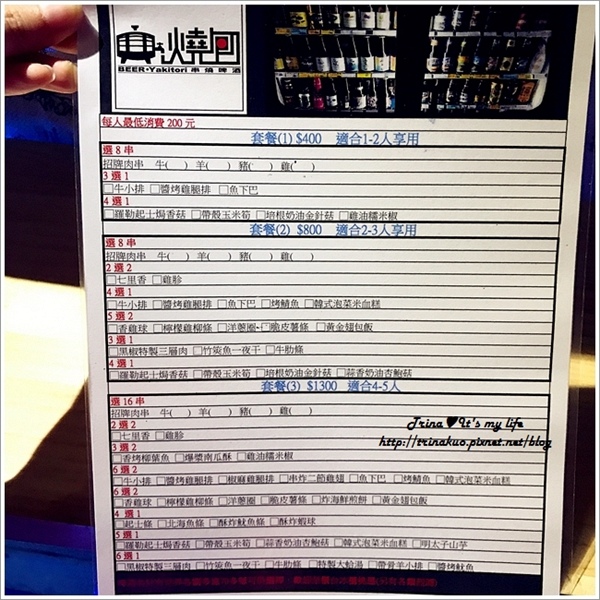 燒 BEER
BEER-Yakitori 串燒啤酒
每人最低消費 200 元
套餐(1) $400 適合1-2人享用
選 8 串
招牌肉串 牛( ) 羊( ) 豬( ) 雞( )
3 選 1
□牛小排 □醬烤雞腿排 □魚下巴
4 選 1
□羅勒起士焗香菇 □帶殼玉米筍 □培根奶油金針菇 □雞油糯米椒
套餐(2) $800 適合2-3人享用
選 8 串
招牌肉串 牛( ) 羊( ) 豬( ) 雞( )
2 選 2
□七里香 □雞胗
4 選 1
□牛小排 □醬烤雞腿排 □魚下巴 □烤鯖魚 □韓式泡菜米血糕
5 選 2
□香雞球 □檸檬雞柳條 □洋蔥圈 □脆皮薯條 □黃金翅包飯
3 選 1
□黑椒特製三層肉 □竹筴魚一夜干 □牛肋條
4 選 1
□羅勒起士焗香菇 □帶殼玉米筍 □培根奶油金針菇 □蒜香奶油杏鮑菇
套餐(3) $1300 適合4-5人
選 16 串
招牌肉串 牛( ) 羊( ) 豬( ) 雞( )
2 選 2
□七里香 □雞胗
3 選 2
□香烤柳葉魚 □爆漿南瓜酥 □雞油糯米椒
6 選 2
□牛小排 □醬烤雞腿排 □椒麻雞腿排 □串炸二節雞翅 □魚下巴 □烤鯖魚 □韓式泡菜米血糕
6 選 2
□香雞球 □檸檬雞柳條 □洋蔥圈 □脆皮薯條 □炸海鮮煎餅 □黃金翅包飯
4 選 1
□起士條 □北海魚條 □酥炸魷魚條 □酥炸蝦球
5 選 1
□羅勒起士焗香菇 □帶殼玉米筍 □蒜香奶油杏鮑菇 □韓式泡菜米血糕 □明太子山芋
6 選 1
□黑椒特製三層肉 □竹筴魚一夜干 □牛肋條 □特製大蛤湯 □帶骨羊小排 □鹽烤魷魚
Trina♥It's my life
http://trinakuo.pixnet.net/blog